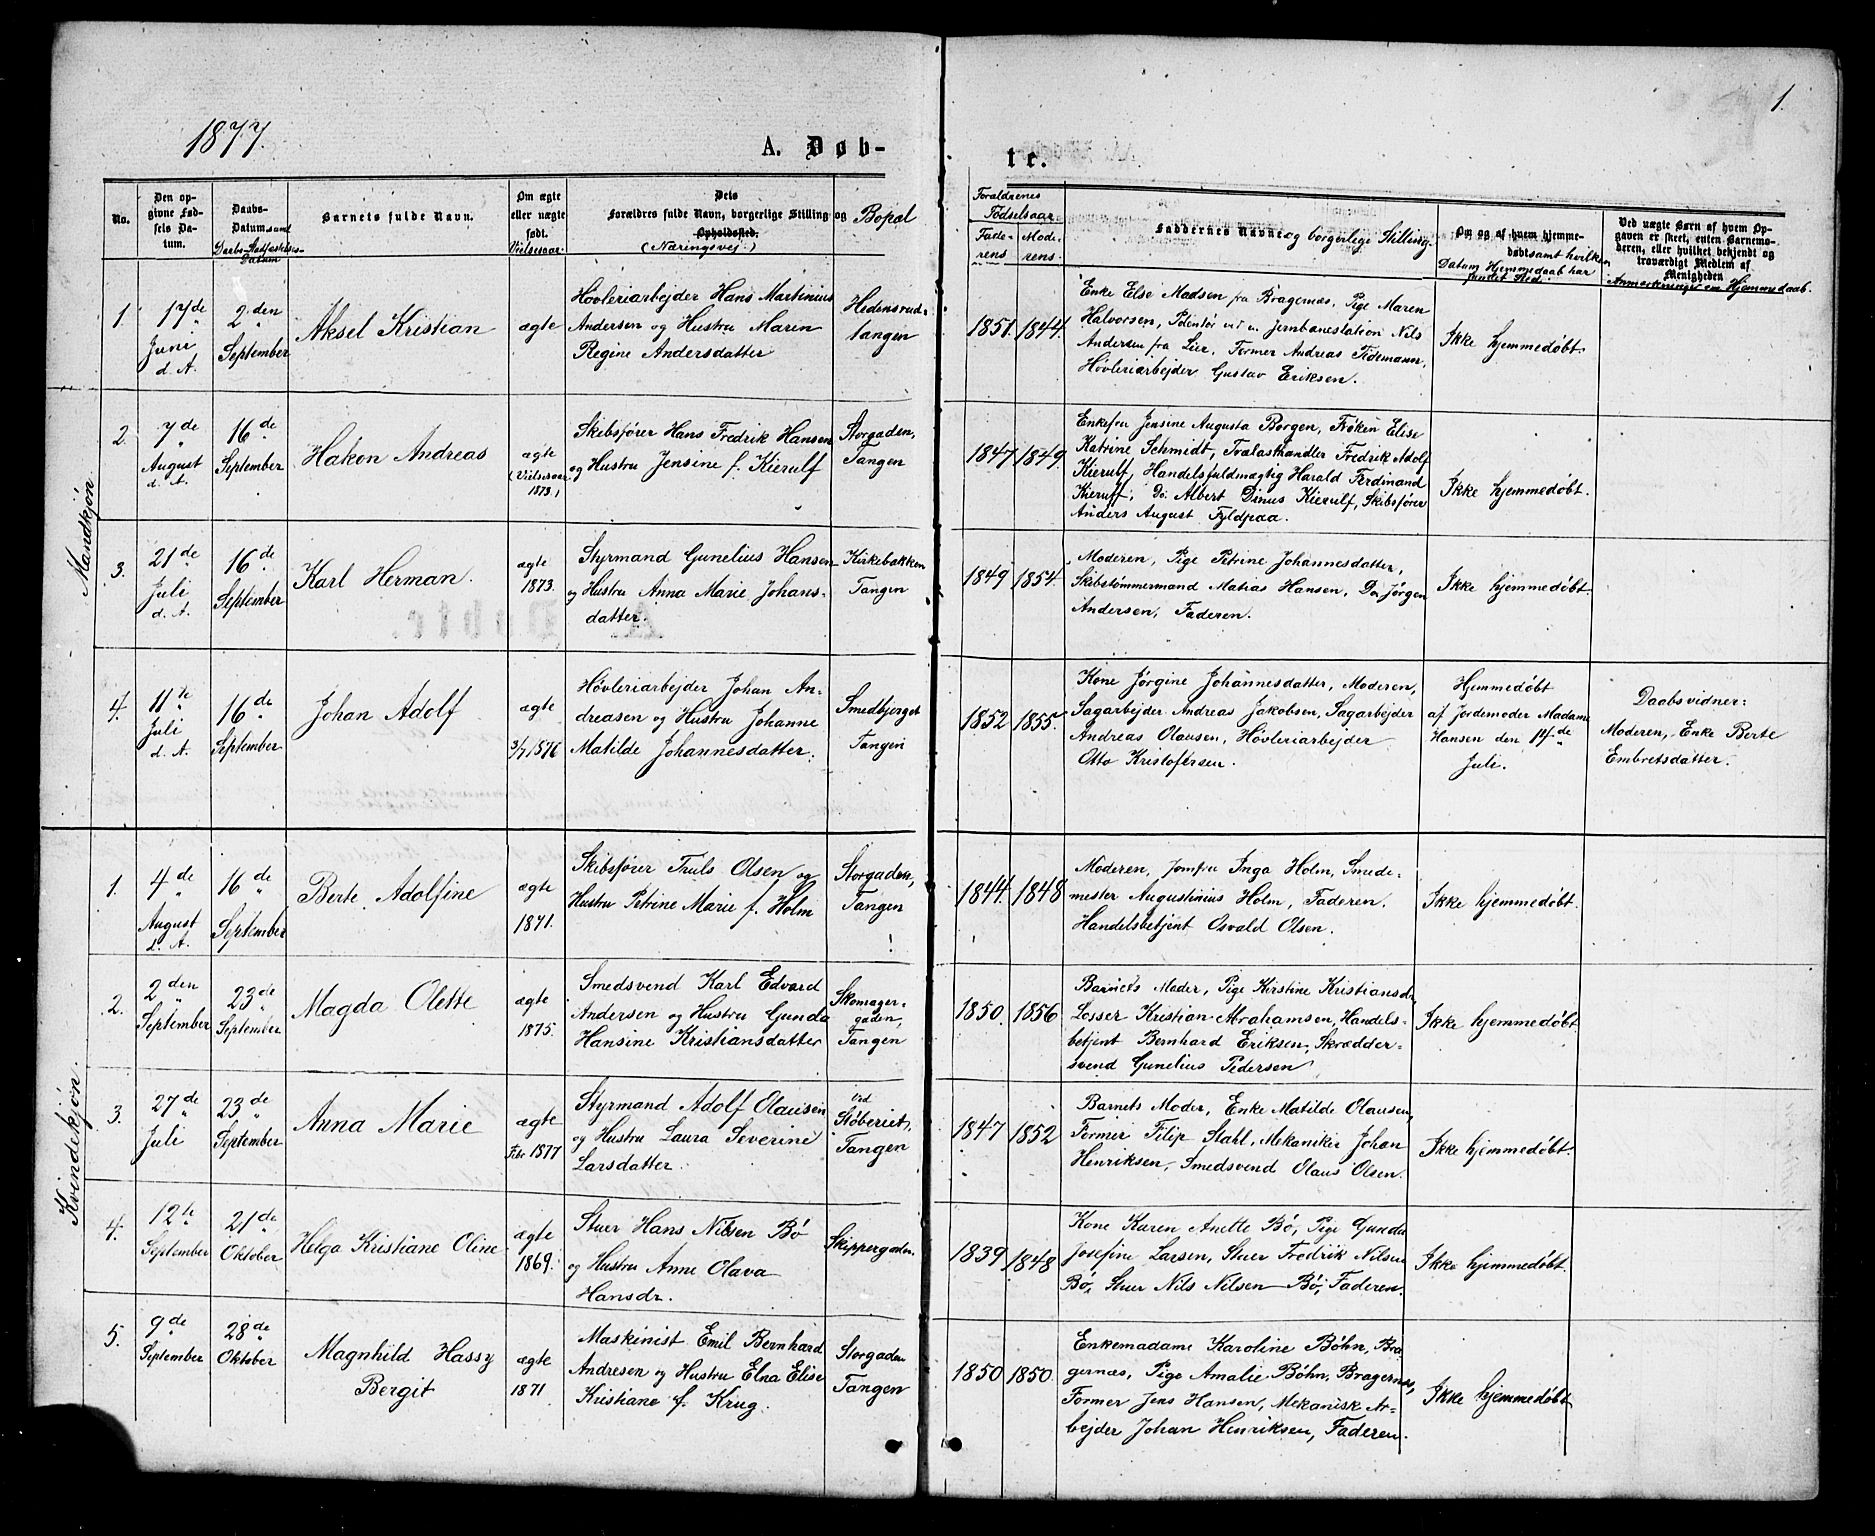 1877.
1.
A. Døb-
te.
No.
Den opgivne Fødsels Datum.
Daabs-Datum samt Daabs-Stadfæstelses-Datum
Barnets fulde Navn.
Om ægte eller uægte født. Vielsesaar
Dets Forældres fulde Navn, borgerlige Stilling og Bopæl
Opholdssted.
(Næringsvej.)
Forældrenes Fødselsaar
Faderens
Moderens
Faddernes Navne og borgerlige Stilling.
Om og af hvem hjemmedøbt samt hvilken Datum Hjemmedaab har fundet Sted.
Ved uægte Børn af hvem Opgaven er skeet, enten Barnemoderen, eller hvilket bekjendt og troværdigt Medlem af Menigheden
Anmærkninger om Hjemmedaab.
Mandkjøn
1.
17de Juni d. A.
2den September
Aksel Kristian
ægte
Høvleriarbejder Hans Martinius
Andersen og Hustru Maren
Regine Andersdatter
Hedensrud-
tangen
1851.
1844.
Enke Else Madsen fra Bragernæs, Pige Maren
Halvorsen, ved Jernbanestation Nils
Andersen fra Lier, Former Andreas Tidemann,
Høvleriarbejder Gustav Eriksen.
Ikke hjemmedøbt.
2
7de August d. A.
16de September
Hakon Andreas
ægte
(Vielsesaar 1873.)
Skibsfører Hans Fredrik Hansen
og Hustru Jensine f. Kierulf
Storgaden,
Tangen
1847
1849.
Enkefru Jensine Augusta Borgen, Frøken Elise
Katrine Schmidt, Trælasthandler Fredrik Adolf
Kierulf, Handelsfuldmægtig Harald Ferdinand
Kierulf, Do. Albert Dinus Kierulf, Skibsfører
Anders August Fyldpaa.
Ikke hjemmedøbt.
3.
21de Juli d. A.
16de September
Karl Herman.
ægte
1873.
Styrmand Gunelius Hansen
og Hustru Anna Marie Johans-
datter.
Kirkebakken
Tangen
1849
1854.
Moderen, Pige Petrine Johannesdatter,
Skibstømmermand Matias Hansen, Do Jørgen
Andersen, Faderen.
Ikke hjemmedøbt.
4.
11te Juli d. A.
16de September
Johan Adolf
ægte
3/7 1876
Høvleriarbejder Johan An-
dreasen og Hustru Johanne
Matilde Johannesdatter.
Smedbjerget
Tangen
1852
1855.
Kone Jørgine Johannesdatter, Moderen,
Sagarbejder Andreas Jakobsen, Sagarbejder
Andreas Olausen, Høvleriarbejder
Otto Kristofersen.
Hjemmedøbt
af Jordemoder Madame
Hansen den 14de
Juli.
Daabsvidner:
Moderen, Enke Berte
Embretsdatter.
Kvindekjøn
1.
4de August d. A.
16de September
Berte Adolfine
ægte
1871.
Skibsfører Truls Olsen og
Hustru Petrine Marie f. Holm
Storgaden,
Tangen
1844.
1848
Moderen, Jomfru Inga Holm, Smede-
mester Augustinius Holm, Faderen,
Handelsbetjent Osvald Olsen.
Ikke hjemmedøbt.
2.
2den September
23de September
Magda Olette
ægte
1875.
Smedsvend Karl Edvard
Andersen og Hustru Gunda
Hansine Kristiansdatter
Skomager-
gaden,
Tangen
1850.
1856
Barnets Moder, Pige Kirstine Kristiansdr
Losser Kristian Abrahamsen, Handels-
betjent Bernhard Eriksen, Skrædder-
svend Gunelius Pedersen
Ikke hjemmedøbt
3.
27de Juli
23de September
Anna Marie
ægte
Febr 1877
Styrmand Adolf Olausen
og Hustru Laura Severine
Larsdatter.
ved
Støberiet,
Tangen
1847
1852
Barnets Moder, Enke Matilde Olausen,
Former Filip Stahl, Mekaniker Johan
Henriksen, Smedsvend Olaus Olsen.
Ikke hjemmedøbt.
4.
12te September
21de Oktober
Helga Kristiane Oline
ægte
1869.
Stuer Hans Nilsen Bø
og Hustru Anne Olava
Hansdr.
Skippergaden
1839
1848
Kone Karen Anette Bø, Pige Gunda
Josefine Larsen, Stuer Fredrik Nilsen
Bø, Stuer Nils Nilsen Bø, Faderen.
Ikke hjemmedøbt.
5.
9de September
28de Oktober
Magnhild Hassy
Bergit
ægte
1871.
Maskinist Emil Bernhard
Andresen og Hustru Elna Elise
Kristiane f. Krug.
Storgaden
Tangen
1850
1850.
Enkemadame Karoline Bøhn, Bra
gernæs, Pige Amalie Bøhn, Bragernæs,
Former Jens Hansen, Mekanisk Ar-
bejder Johan Henriksen, Faderen.
Ikke hjemmedøbt